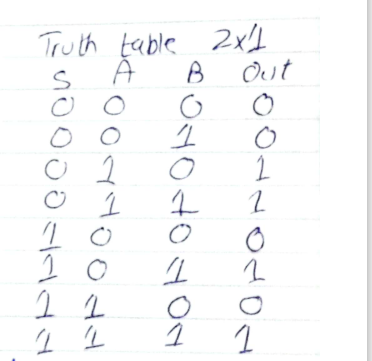 Truth table 2x1
S A B Out
0 0 0 0
0 0 1 0
0 1 0 1
0 1 1 1
1 0 0 0
1 0 1 1
1 1 0 0
1 1 1 1